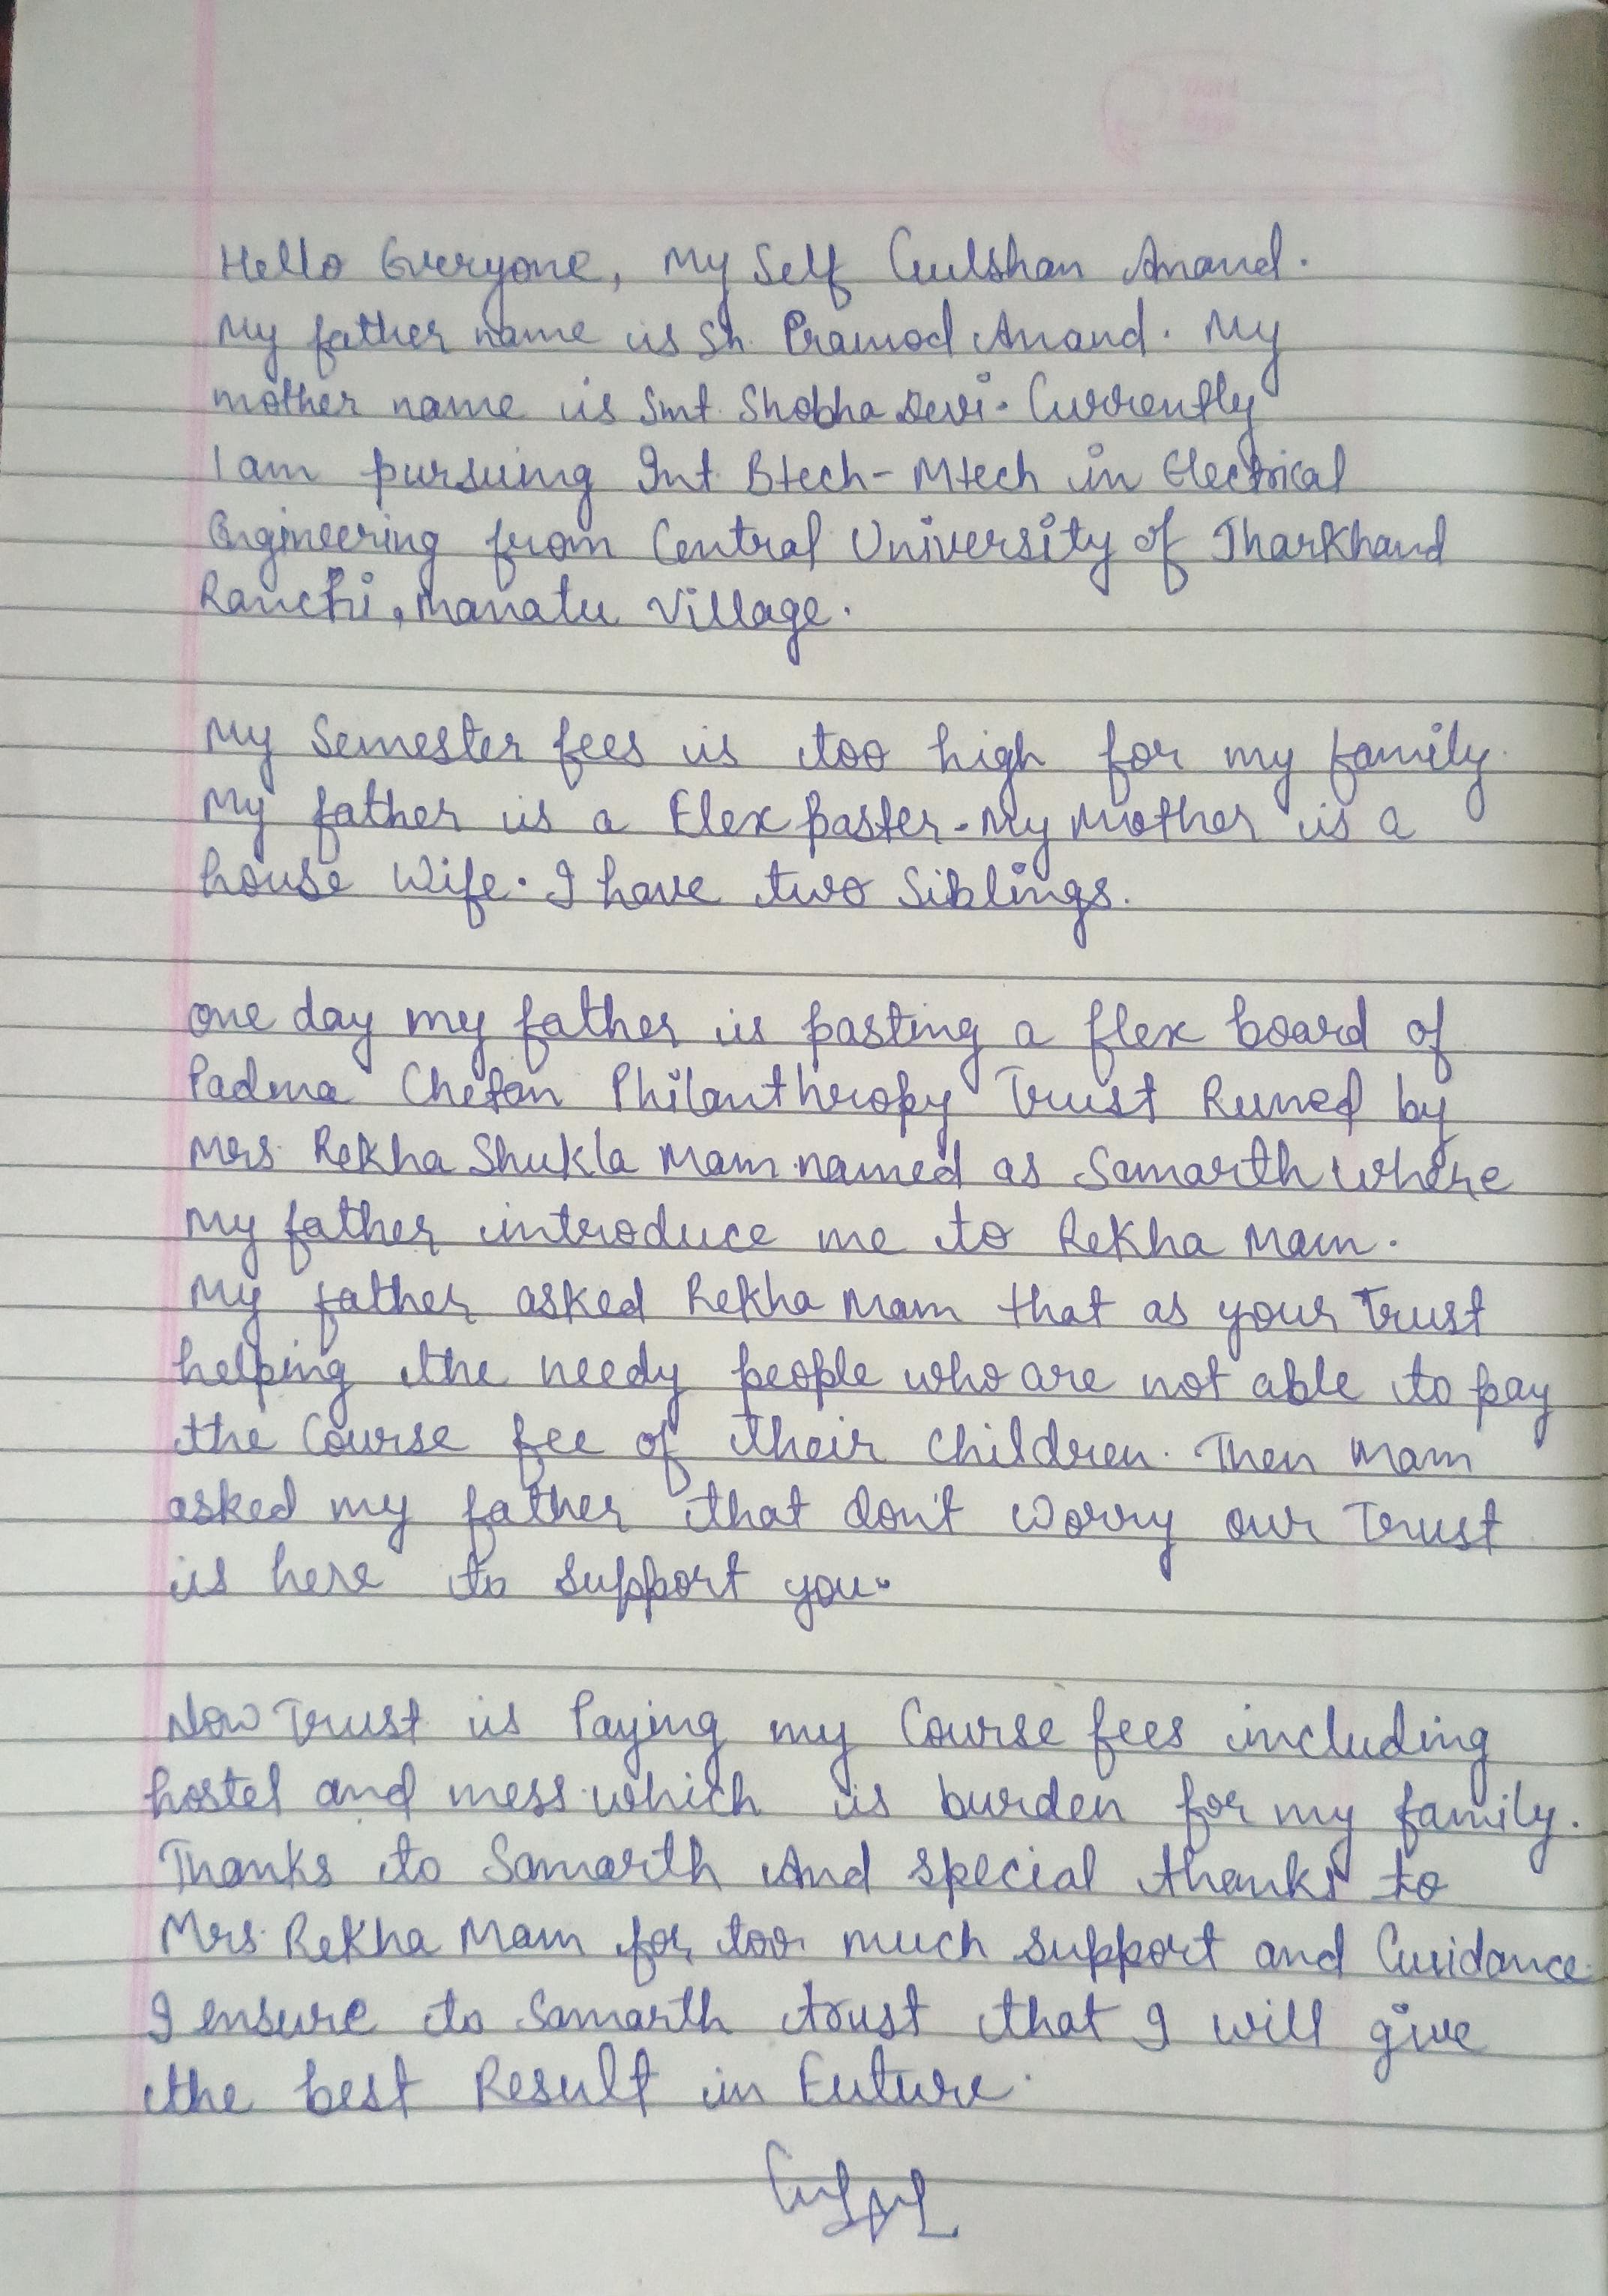 Hello Everyone, My Self Gulshan Anand.
My father name is Sh. Pramod Anand. My
mother name is Smt. Shobha Devi. Currently
I am pursuing Int Btech-Mtech in Electrical
Engineering from Central University of Jharkhand
Ranchi, Manatu Village.
My Semester fees is too high for my family.
My father is a Flex paster. My Mother is a
house Wife. I have two Siblings.
one day my father is pasting a flex board of
Padma Chetan Philanthropy Trust Runed by
Mrs. Rekha Shukla Mam named as Samarth where
My father introduce me to Rekha Mam.
My father asked Rekha Mam that as your Trust
helping the needy people who are not able to pay
the Course fee of their Children. Then Mam
asked my father that don't worry our Trust
is here to support you.
Now Trust is Paying my Course fees including
hostel and mess which is burden for my family.
Thanks to Samarth And special thanks to
Mrs. Rekha Mam for too much support and Guidance.
I ensure to Samarth trust that I will give
the best Result in Future.